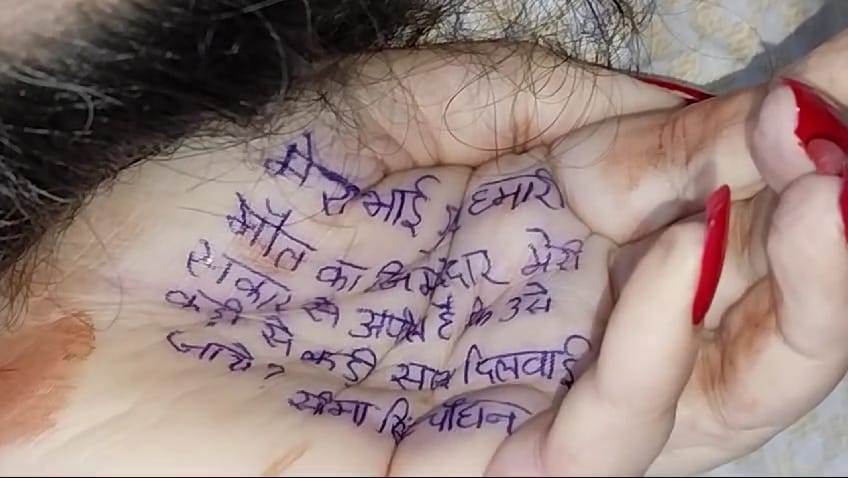 मेरा भाई हमारी
मौत का जिमेदार मेरी
सरकार से अपील है कि उसे
कड़ी से कडी सजा दिलवाई
जाये?
सीमा पांघन